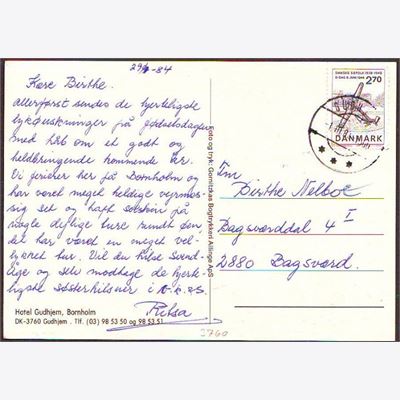 29/6-84
Kære Birthe.
Allerførst sendes de hjerteligste
lykønskninger på fødselsdagen
med håb om et godt og
heldbringende kommende år.
Vi ferierer her på Bornholm og
har været meget heldige vejrmæs-
sig set og haft solskin på
nogle dejlige ture rundt den-
det har været en meget vel-
lykket tur. Vil du hilse Svend
Åge og selv modtage de hjerte-
ligste søsterhilsner i
Rilsa
Hotel Gudhjem, Bornholm
DK-3760 Gudhjem . Tlf. (03) 98 53 50 og 98 53 51
Foto og tryk: Gornitzkas Bogtrykkeri Allinge ApS
DANSKE SØFOLK 1939-1945
D-DAG 6. JUNI 1944
2.70
DANMARK
Frn
Birthe Nelboe
Bagsværddal 4 I
2880 Bagsværd.
3760